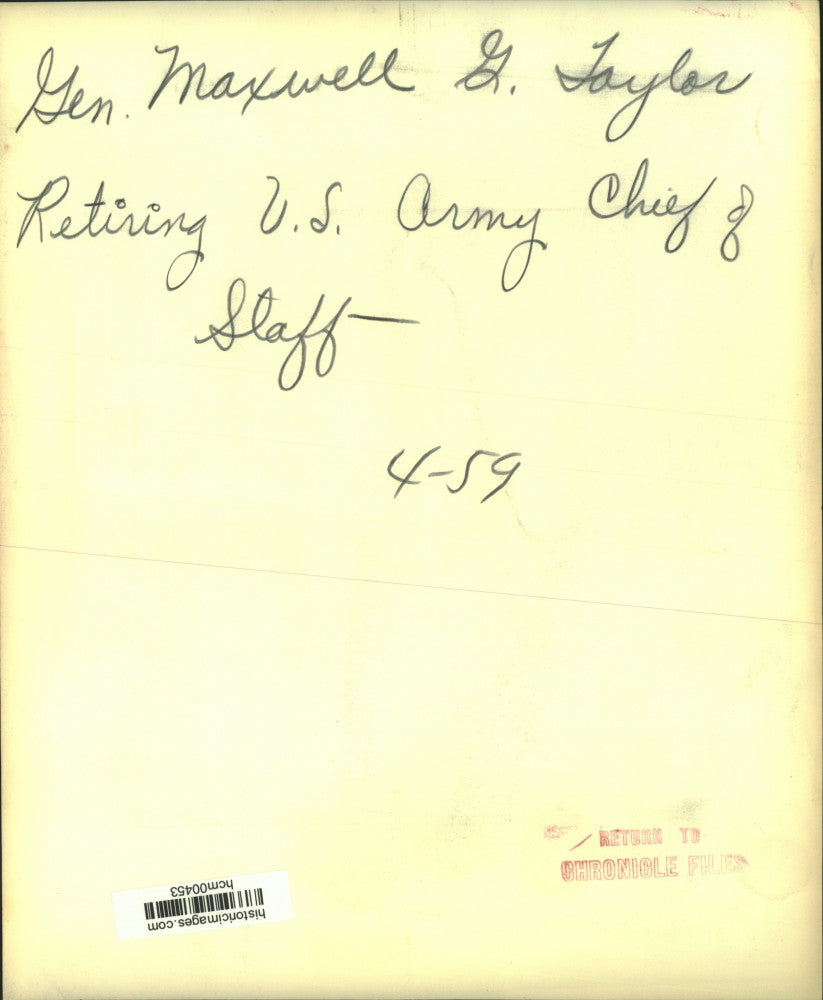 Gen. Maxwell G. Taylor
Retiring U.S. Army Chief of
Staff—
4-59
RETURN TO
CHRONICLE FILES
historicimages.com
hcm00453